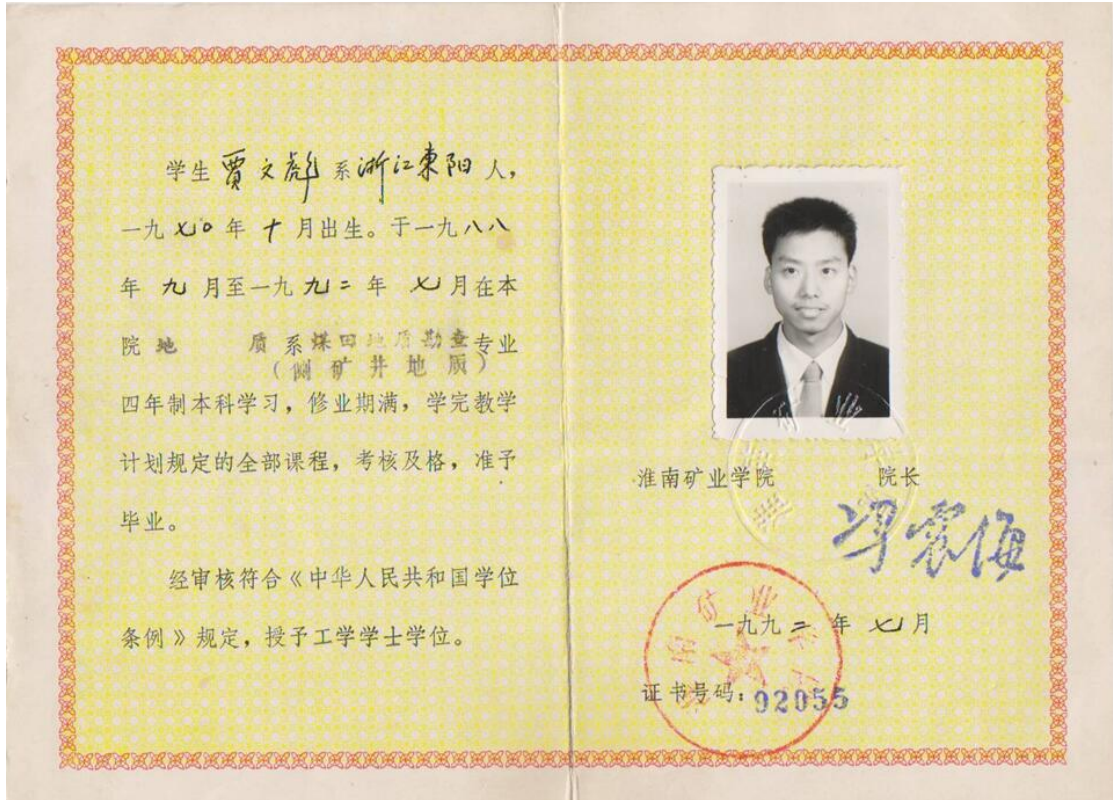 学生 贾文彪 系 浙江東阳 人，
一九七〇年 十 月出生。于一九八八
年 九 月至一九九二年 七月在本
院 地 质 系 煤田地质勘查专业
（侧矿井地质）
四年制本科学习，修业期满，学完教学
计划规定的全部课程，考核及格，准予
毕业。
经审核符合《中华人民共和国学位
条例》规定，授予工学学士学位。
淮南矿业学院 院长
冯震海
一九九二 年 七月
证书号码：92055
淮南矿业学院